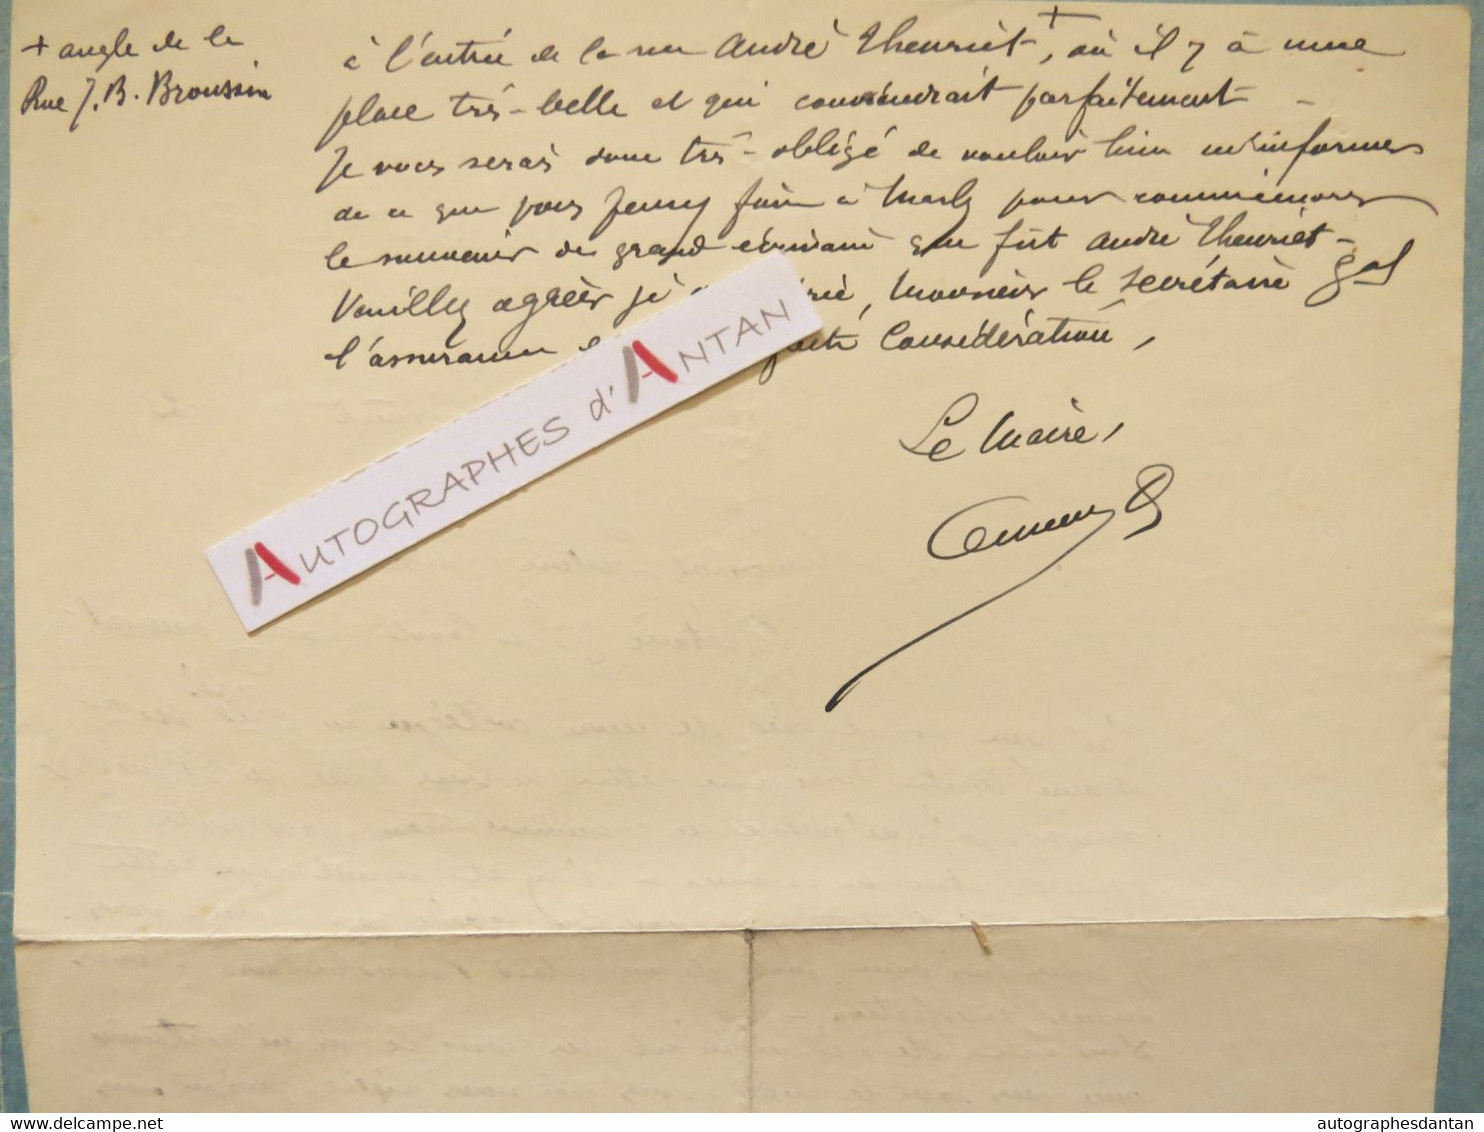 + angle de la
Rue J. B. Broussin
à l'entrée de la rue André Theuriet +, où il y à une
place très-belle et qui conviendrait parfaitement -
Je vous serais donc très-obligé de vouloir bien m'informer
de ce que vous pensez faire à Marly pour commémorer
le souvenir du grand écrivain que fût André Theuriet -
Veuillez agréer je prie, Monsieur le Secrétaire Gal
l'assurance considération,
Le Maire,
AUTOGRAPHES d'ANTAN
autographesdantan